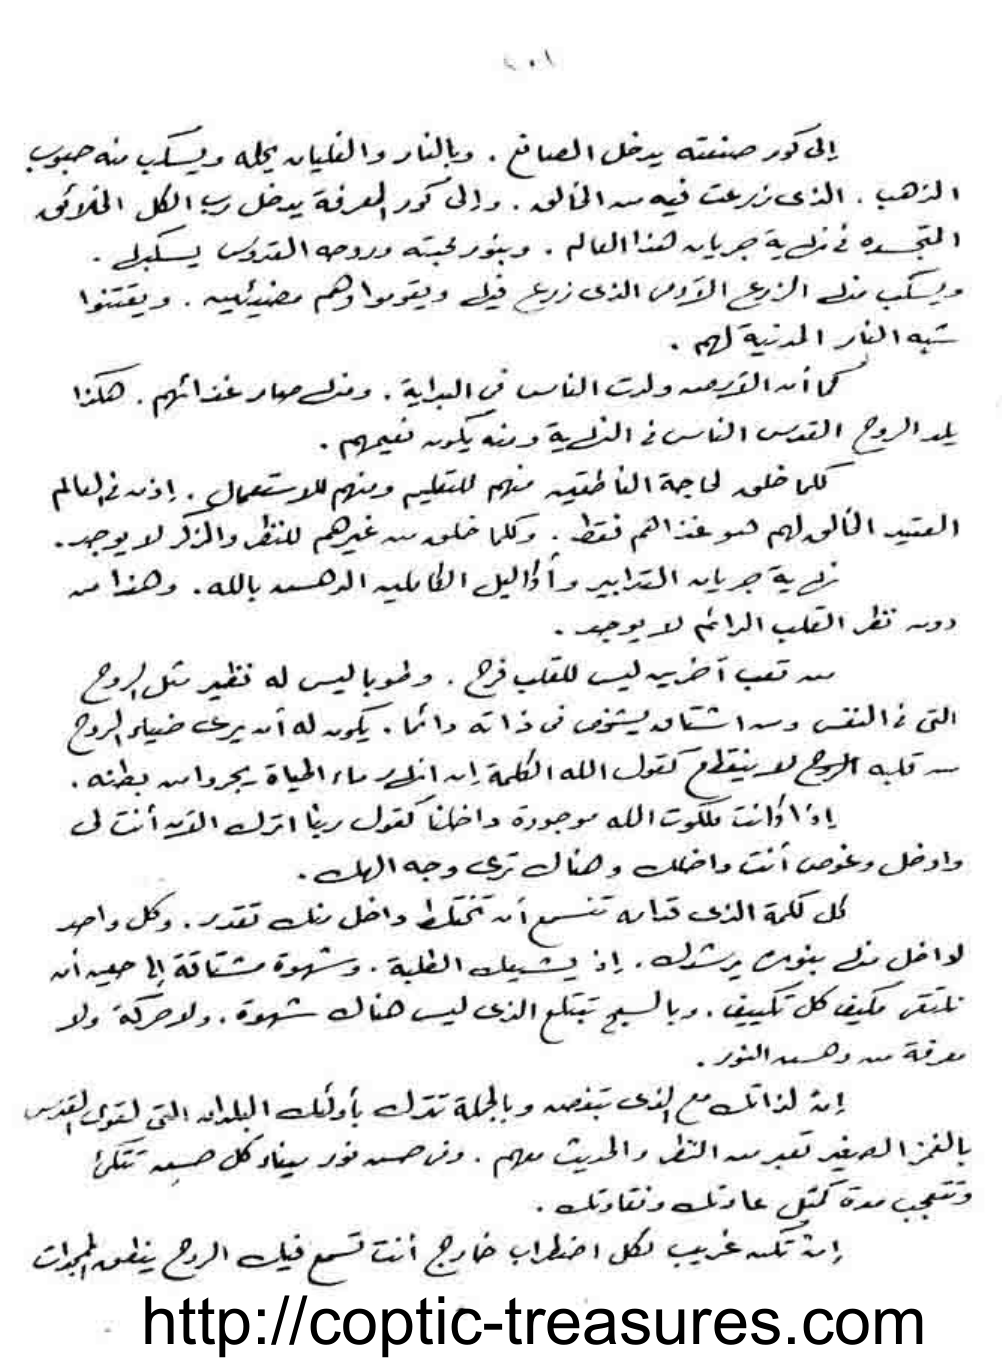 ٢٠١
إلى كور صنعته يدخل الصانع . وبالنار والغليان يحله ويسكب منه حبوب
الذهب . الذى زرعت فيه من الخالق . وإلى كور المعرفة يدخل رب الكل الخلائق
المتجسده فى نهاية جريان هذا العالم . وبنور محبته وروحه القدوس يسكبهم .
ويسكب منهم الزرع الآدمى الذى زرع فيهم ويقوموا وهم مضيئين . ويقتنوا
شبه النار المدنية لهم .
كما أن الأرض ولدت الناس فى البداية . ومنها صار غذائهم . هكذا
يلد الروح القدس الناس فى النهاية ومنه يكون نعيمهم .
كلما خلق لحاجة الناطقين منهم للتعليم ومنهم للاستعمال . إذن فى العالم
العتيد الخالق لهم هو غذاهم فقط . وكلما خلق من غيرهم للنظر والذكر لا يوجد .
نهاية جريان التدابير وأكاليل الكاملين الدهش بالله . وهذا من
دون نظر القلب الدائم لا يوجد .
من تعب آخرين ليس للقلب فرح . وطوبا ليس له نظير مثل الروح
التى فى النفس ومن اشتاق يشخص فى ذاته دائما . يكون له أن يرى ضياء الروح
من قلبه الروح لا ينقطع كقول الله الكلمة إن انهار ماء الحياة يجروا من بطنه .
إذا كانت ملكوت الله موجودة داخلنا كقول ربنا اترك الآن أنت لى
وادخل وغوص أنت داخلك وهناك ترى وجه الهك .
كل كلمة الذى قدامه تنسمع أن تختلط داخل منك تقدر . وكل واحد
لداخل منه بنوره يرشدك . إذ يشبيك الطلبة . وشهوة مشتاقة إلى حين أن
تلتقى مكيف كل تكييف . وبالسبح تبتلع الذى ليس هناك شهوة . ولا حركة ولا
معرفة من دهش النور .
إن لذاتك مع الذى تبغض وبالجملة تترك بأولئك البلدان التى لقوى القدس
بالغمز الصغير تعبر من النظر والحديث معهم . وفى حسن نور ميناء كل حسن تتكئ
وتتعجب مدة كمثل عادتك ونقاوتك .
إن تكن غريب لكل اضطراب خارج أنت تسمع فيك الروح ينطق المجدات
http://coptic-treasures.com